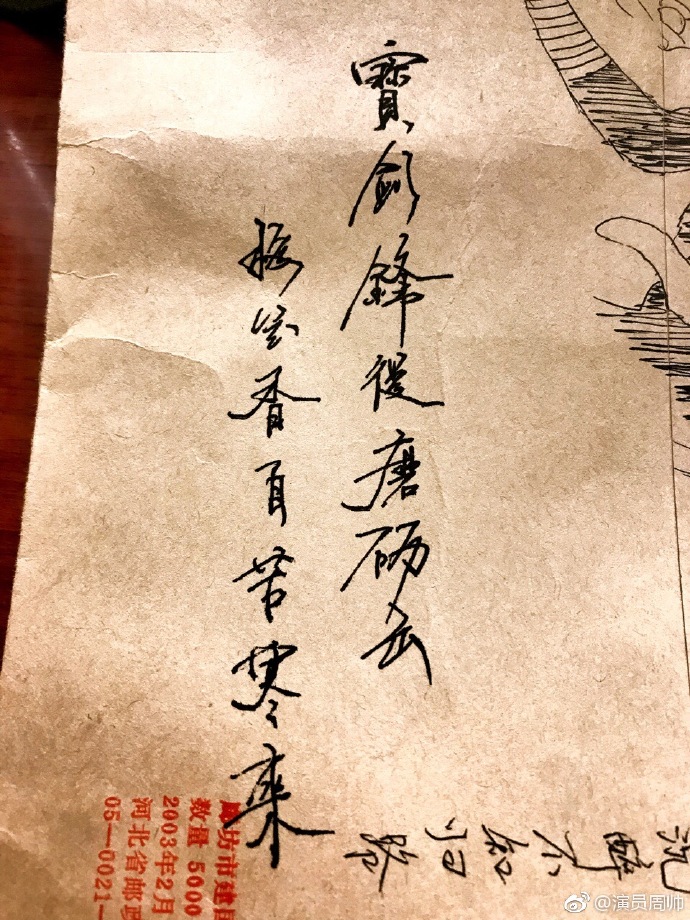 寶劍鋒從磨砺出
梅花香自苦寒來
沉醉不知归路
廊坊市建
数量 5000
2003年2月
河北省邮
05—0021—
@演员周帅